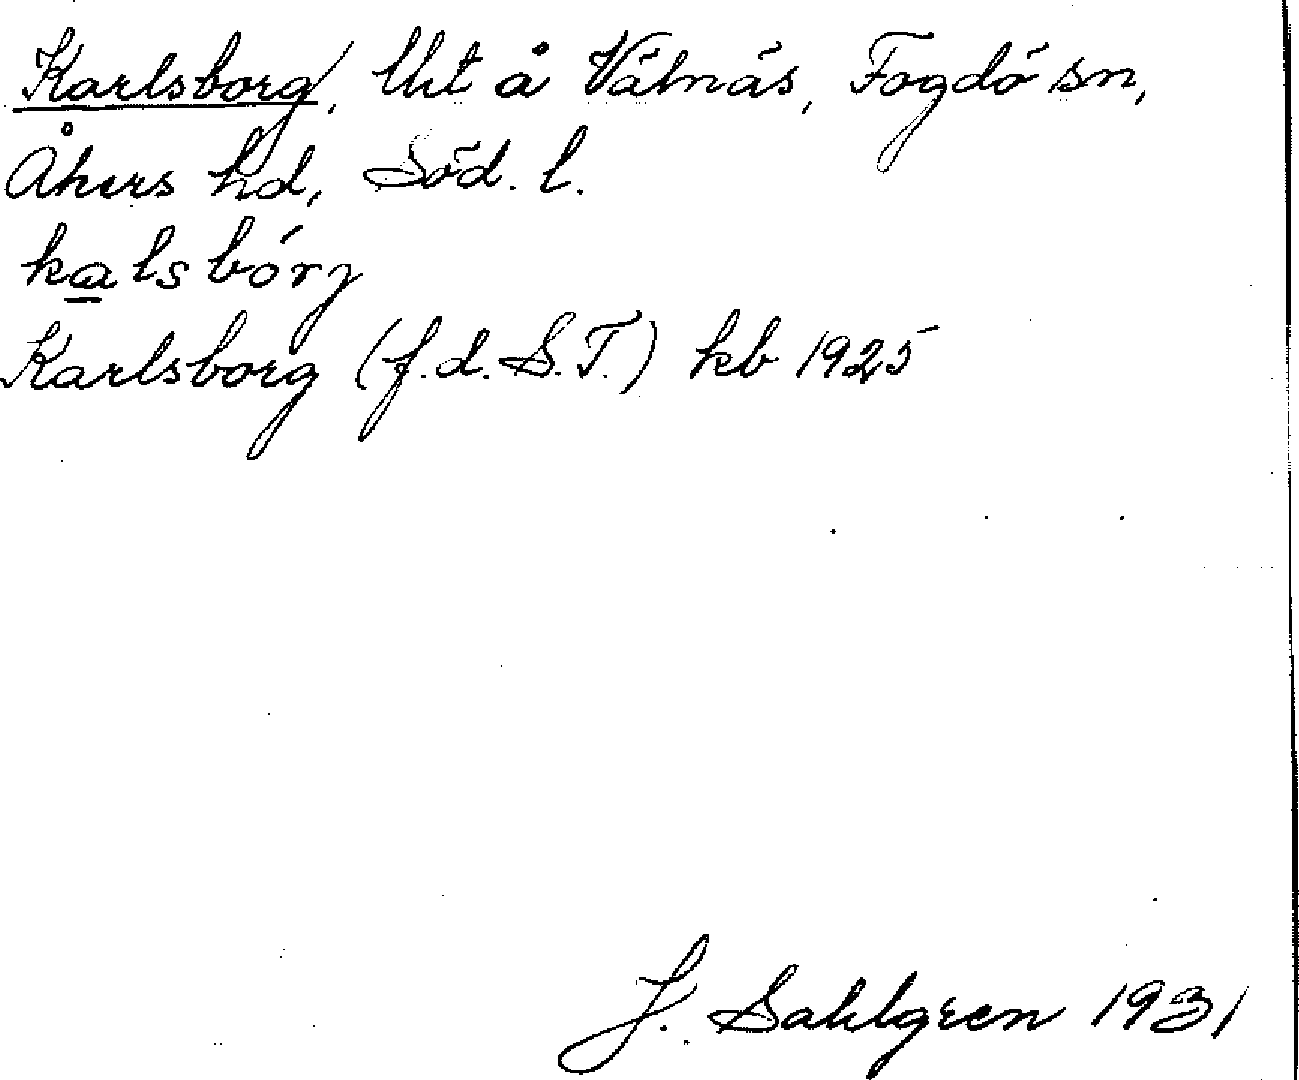 Karlsborg, Uht å Välnäs, Fogdö sn,
Åkers hd, Söd. l.
kalsbórj
Karlsborg (f.d. S.T.) kb 1925
J. Sahlgren 1931